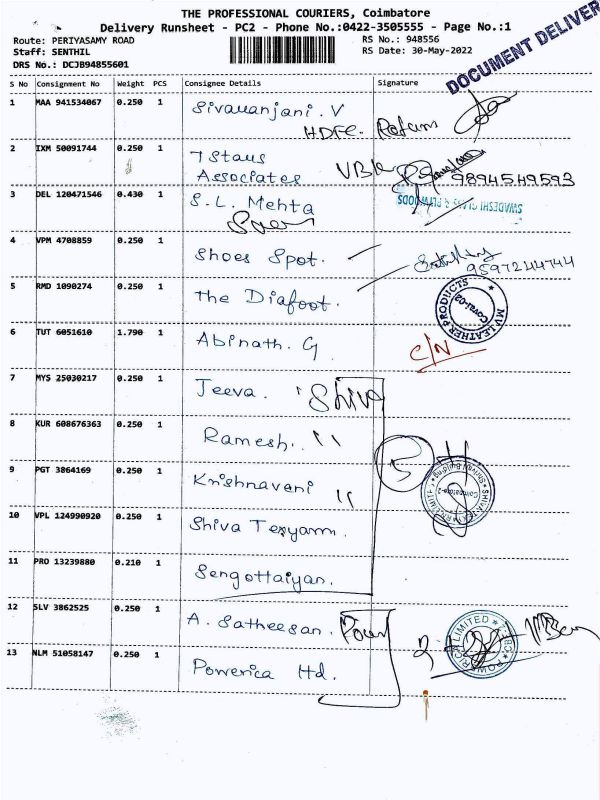 THE PROFESSIONAL COURIERS, Coimbatore
Delivery Runsheet - PC2 - Phone No.:0422-3505555 - Page No.:1
Route: PERIYASAMY ROAD RS No.: 948556
Staff: SENTHIL RS Date: 30-May-2022
DRS No.: DCJB94855601
DOCUMENT DELIVER
S No Consignment No Weight PCS Consignee Details Signature
1 MAA 941534067 0.250 1 Sivaranjani. V
HDFC
2 IXM 50091744 0.250 1 7 Staus
Associates
9894549593
3 DEL 120471546 0.430 1 S.L. Mehta
SWADESHI GLASS & PLYWOODS
4 VPM 4708859 0.250 1 Shoes Spot.
9597244744
5 RMD 1090274 0.250 1 The Diafoot.
MV LEATHER PRODUCTS
6 TUT 6051610 1.790 1 Abinath. G
C/N
7 MYS 25030217 0.250 1 Jeeva. " Shiva
8 KUR 608676363 0.250 1 Ramesh. "
5
9 PGT 3864169 0.250 1 Krishnaveni "
10 VPL 124990920 0.250 1 Shiva Texyarn.
11 PRO 13239880 0.210 1 Sengottaiyan.
12 SLV 3862525 0.250 1 A. Satheesan. Power
2
13 NLM 51058147 0.250 1 Powerica ltd.